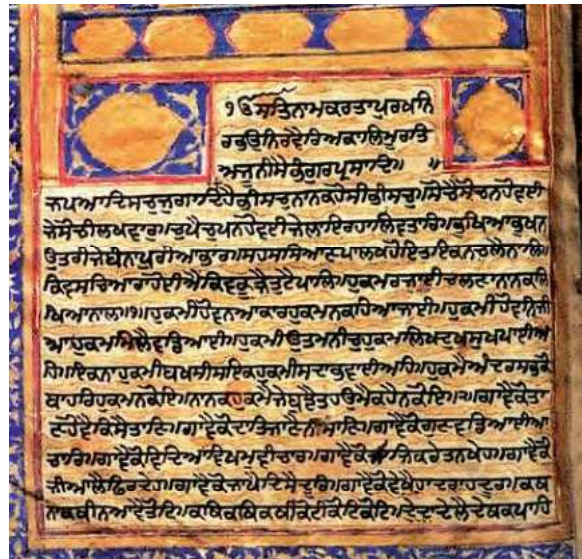 ੴਸਤਿਨਾਮਕਰਤਾਪੁਰਖਨਿ
ਰਭਉਨਿਰਵੈਰਿਅਕਾਲਿਮੂਰਤਿ
ਅਜੂਨੀਸੈਭੰਗੁਰਪ੍ਰਸਾਦਿ॥ ॥
ਜਪਆਦਿਸਚੁਜੁਗਾਦਿਹੈਭੀਸਚੁਨਾਨਕਹੋਸੀਭੀਸਚੁ॥ਸੋਚੈਸੋਚਨਹੋਵਈ
ਜੇਸੋਚੀਲਖਵਾਰ॥ਚੁਪੈਚੁਪਨਹੋਵਈਜੇਲਾਇਰਹਾਲਿਵਤਾਰਿ॥ਭੁਖਿਆਭੁਖਨ
ਉਤਰੀਜੇਬੰਨਾਪੁਰੀਆਭਾਰ॥ਸਹਸਸਿਆਣਪਾਲਖਹੋਇਤਇਕਨਚਲੈਨਾਲਿ॥
ਕਿਵਸਚਿਆਰਾਹੋਈਐਕਿਵਕੂੜੈਤੁਟੈਪਾਲਿ॥ਹੁਕਮਰਜਾਈਚਲਣਾਨਾਨਕਲਿ
ਖਿਆਨਾਲ॥੧॥ਹੁਕਮੀਹੋਵਨਆਕਾਰਹੁਕਮਨਕਹਿਆਜਾਈ॥ਹੁਕਮੀਹੋਵਨਿਜੀ
ਆਹੁਕਮਮਿਲੈਵਡਿਆਈ॥ਹੁਕਮੀਉਤਮਨੀਚੁਹੁਕਮਲਿਖਦੁਖਸੁਖਪਾਈਅ
ਹਿ॥ਇਕਨਾਹੁਕਮੀਬਖਸੀਸਇਕਹੁਕਮੀਸਦਾਭਵਾਈਅਹਿ॥ਹੁਕਮੈਅੰਦਰਸਭੁਕੋ
ਬਾਹਰਿਹੁਕਮਨਕੋਇ॥ਨਾਨਕਹੁਕਮੈਜੇਬੁਝੈਤਹਉਮੈਕਹੈਨਕੋਇ॥੨॥ਗਾਵੈਕੋਤਾ
ਣਹੋਵੈਕਿਸੈਤਾਣਿ॥ਗਾਵੈਕੋਦਾਤਿਜਾਣੈਨੀਸਾਣਿ॥ਗਾਵੈਕੋਗੁਣਵਡਿਆਈਆ
ਚਾਰ॥ਗਾਵੈਕੋਵਿਦਿਆਵਿਖਮਵੀਚਾਰ॥ਗਾਵੈਕੋਸਾਜਿਕਰੇਤਨਖੇਹ॥ਗਾਵੈਕੋ
ਜੀਆਲੈਫਿਰਦੇਹ॥ਗਾਵੈਕੋਜਾਪੈਦਿਸੈਦੂਰਿ॥ਗਾਵੈਕੋਵੇਖੈਹਾਦਰਾਹਦੂਰ॥ਕਥ
ਨਾਕਥੀਨਆਵੈਤੋਟਿ॥ਕਥਿਕਥਿਕਥੀਕੋਟੀਕੋਟਿਕੋਟਿ॥ਦੇਦਾਦੇਲੈਦੇਥਕਪਾਹਿ